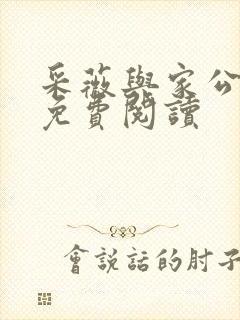 采薇與家公
免費閱讀
會說話的肘子